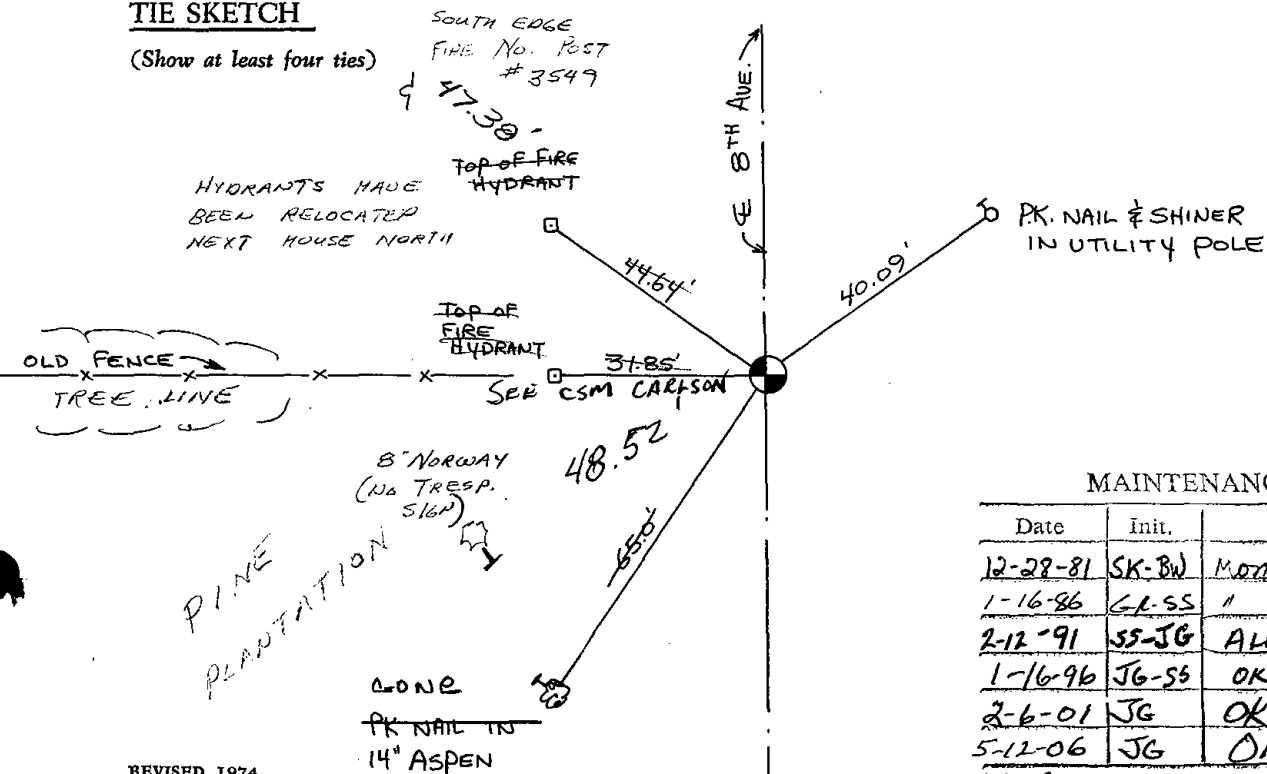 TIE SKETCH
(Show at least four ties)
SOUTH EDGE
FIRE NO. POST
#3549
47.38
TOP OF FIRE
HYDRANT
HYDRANTS HAVE
BEEN RELOCATED
NEXT HOUSE NORTH
℄ 8TH AVE.
P.K. NAIL & SHINER
IN UTILITY POLE
44.64'
40.09'
TOP OF
FIRE
HYDRANT
31.85'
OLD FENCE
TREE LINE
SEE CSM CARLSON
48.52
8" NORWAY
(NO TRESP.
SIGN)
65.0'
PINE
PLANTATION
GONE
PK NAIL IN
14" ASPEN
REVISED 1974
MAINTENANC
Date Init.
12-28-81 SK-BW Mon
1-16-86 GR-SS "
2-12-91 SS-JG AL
1-16-96 JG-SS OK
2-6-01 JG OK
5-12-06 JG